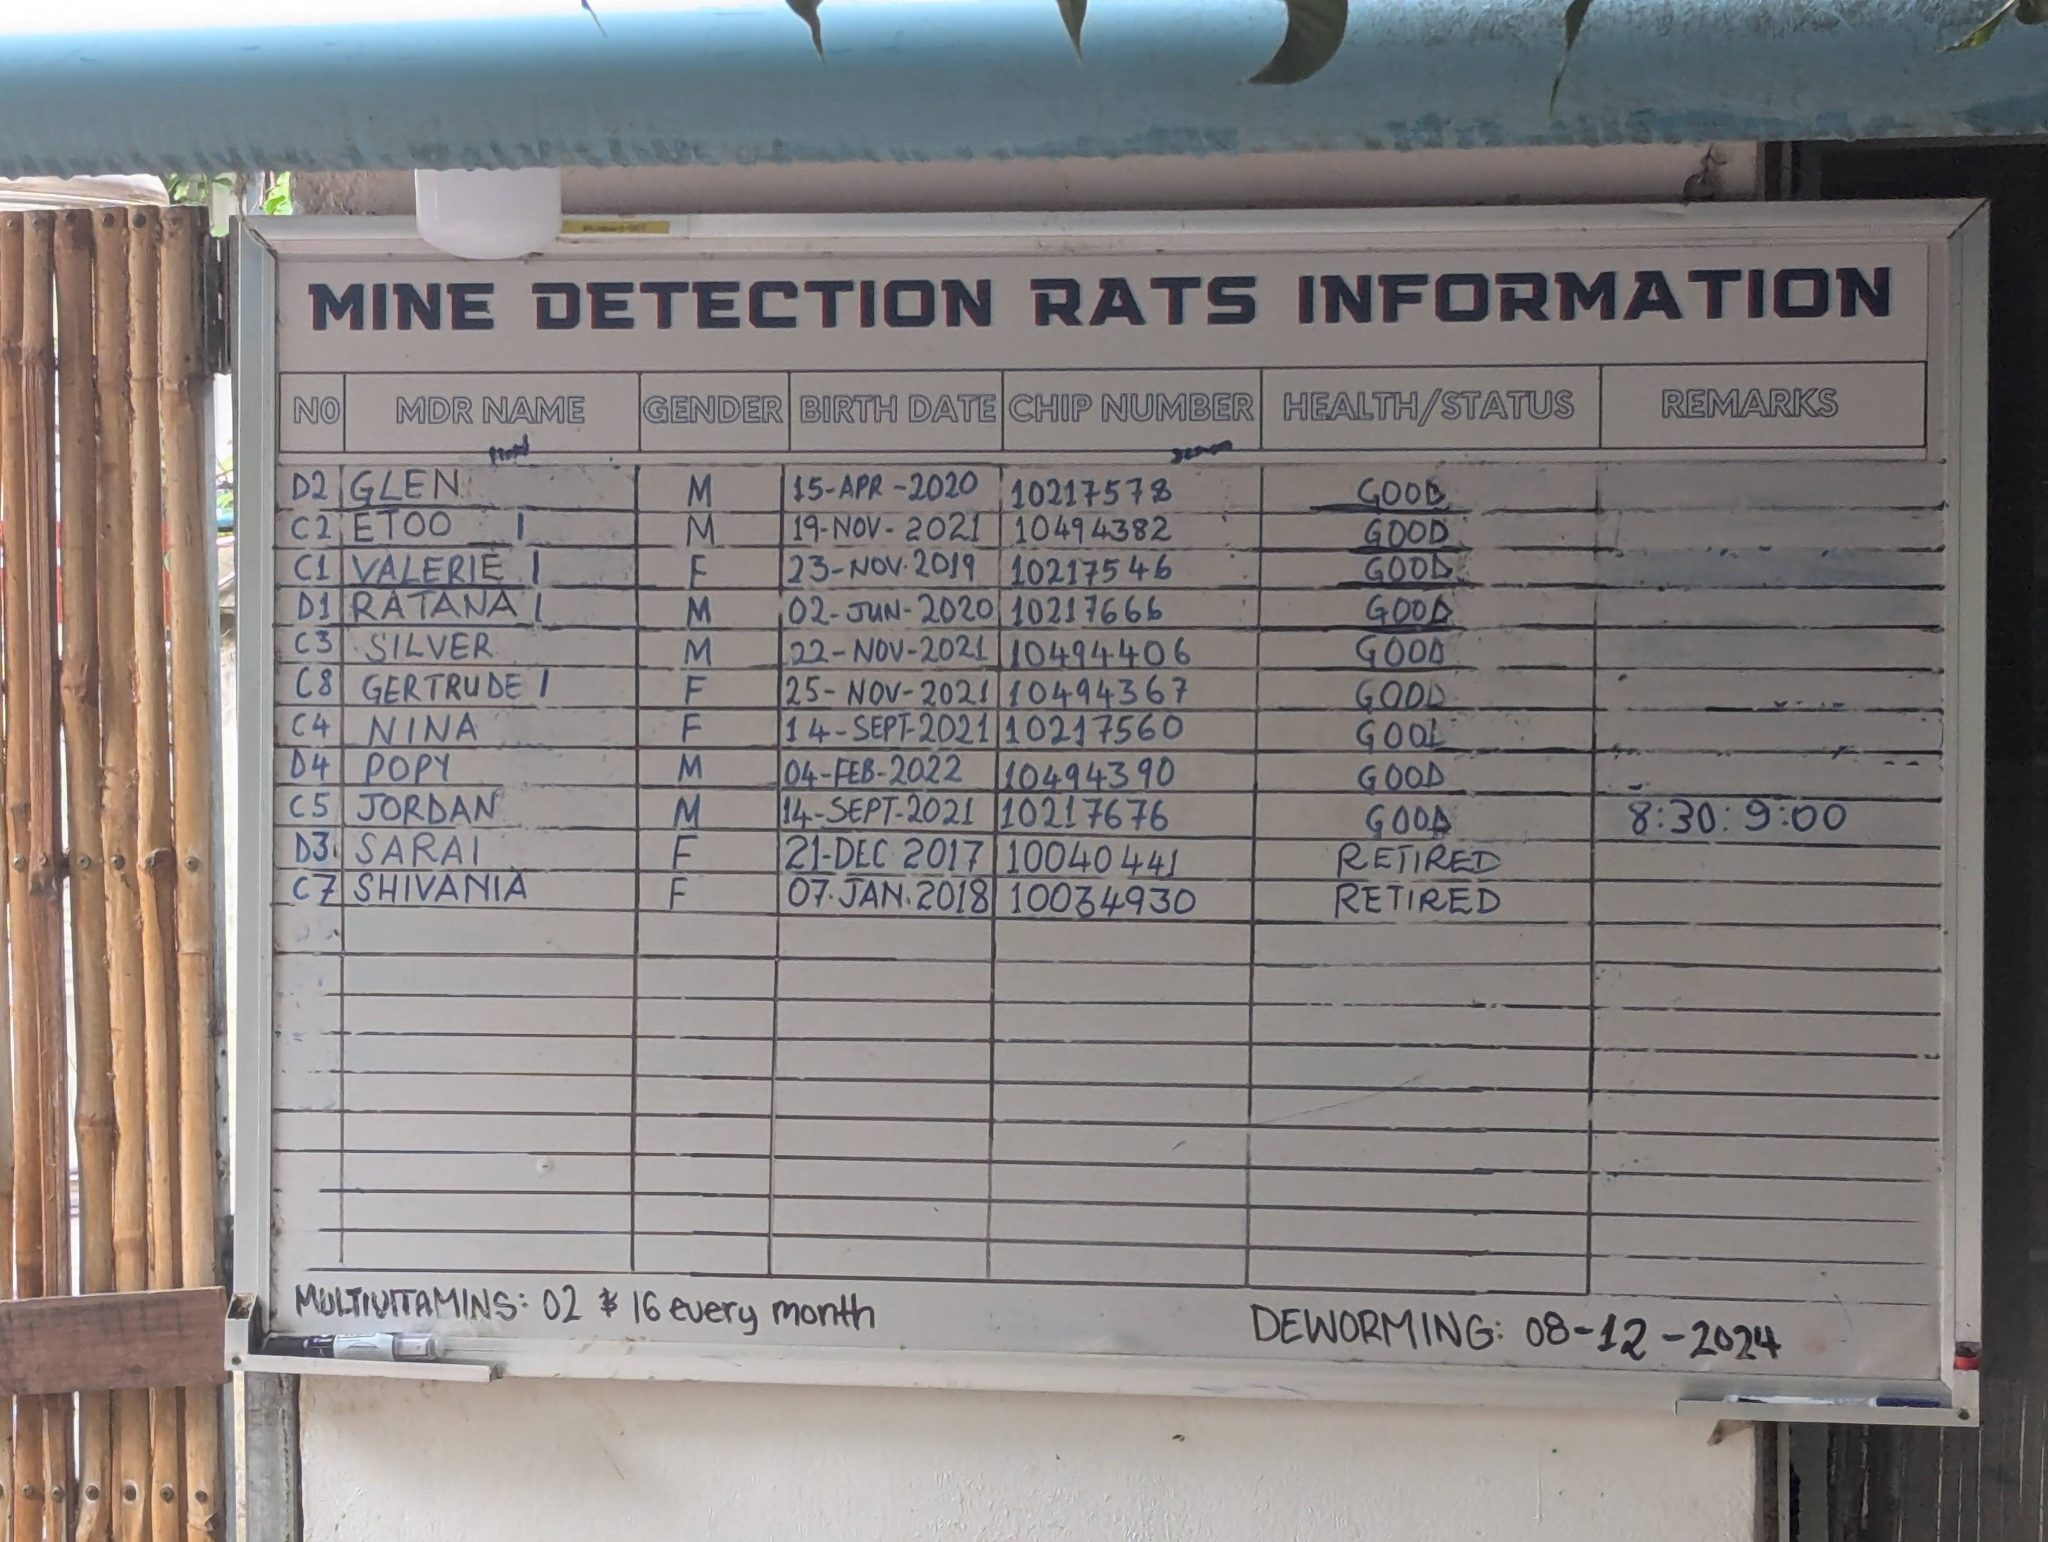 MINE DETECTION RATS INFORMATION
N0 MDR NAME GENDER BIRTH DATE CHIP NUMBER HEALTH/STATUS REMARKS
D2 GLEN M 15-APR-2020 10217578 GOOD
C2 ETOO M 19-NOV-2021 10494382 GOOD
C1 VALERIE F 23-NOV.2019 10217546 GOOD
D1 RATANA M 02-JUN-2020 10217666 GOOD
C3 SILVER M 22-NOV-2021 10494406 GOOD
C8 GERTRUDE F 25-NOV-2021 10494367 GOOD
C4 NINA F 14-SEPT-2021 10217560 GOOD
D4 POPY M 04-FEB-2022 10494390 GOOD
C5 JORDAN M 14-SEPT-2021 10217676 GOOD 8:30: 9:00
D3 SARAI F 21-DEC 2017 10040441 RETIRED
C7 SHIVANIA F 07.JAN.2018 10034930 RETIRED
MULTIVITAMINS: 02 & 16 every month
DEWORMING: 08-12-2024